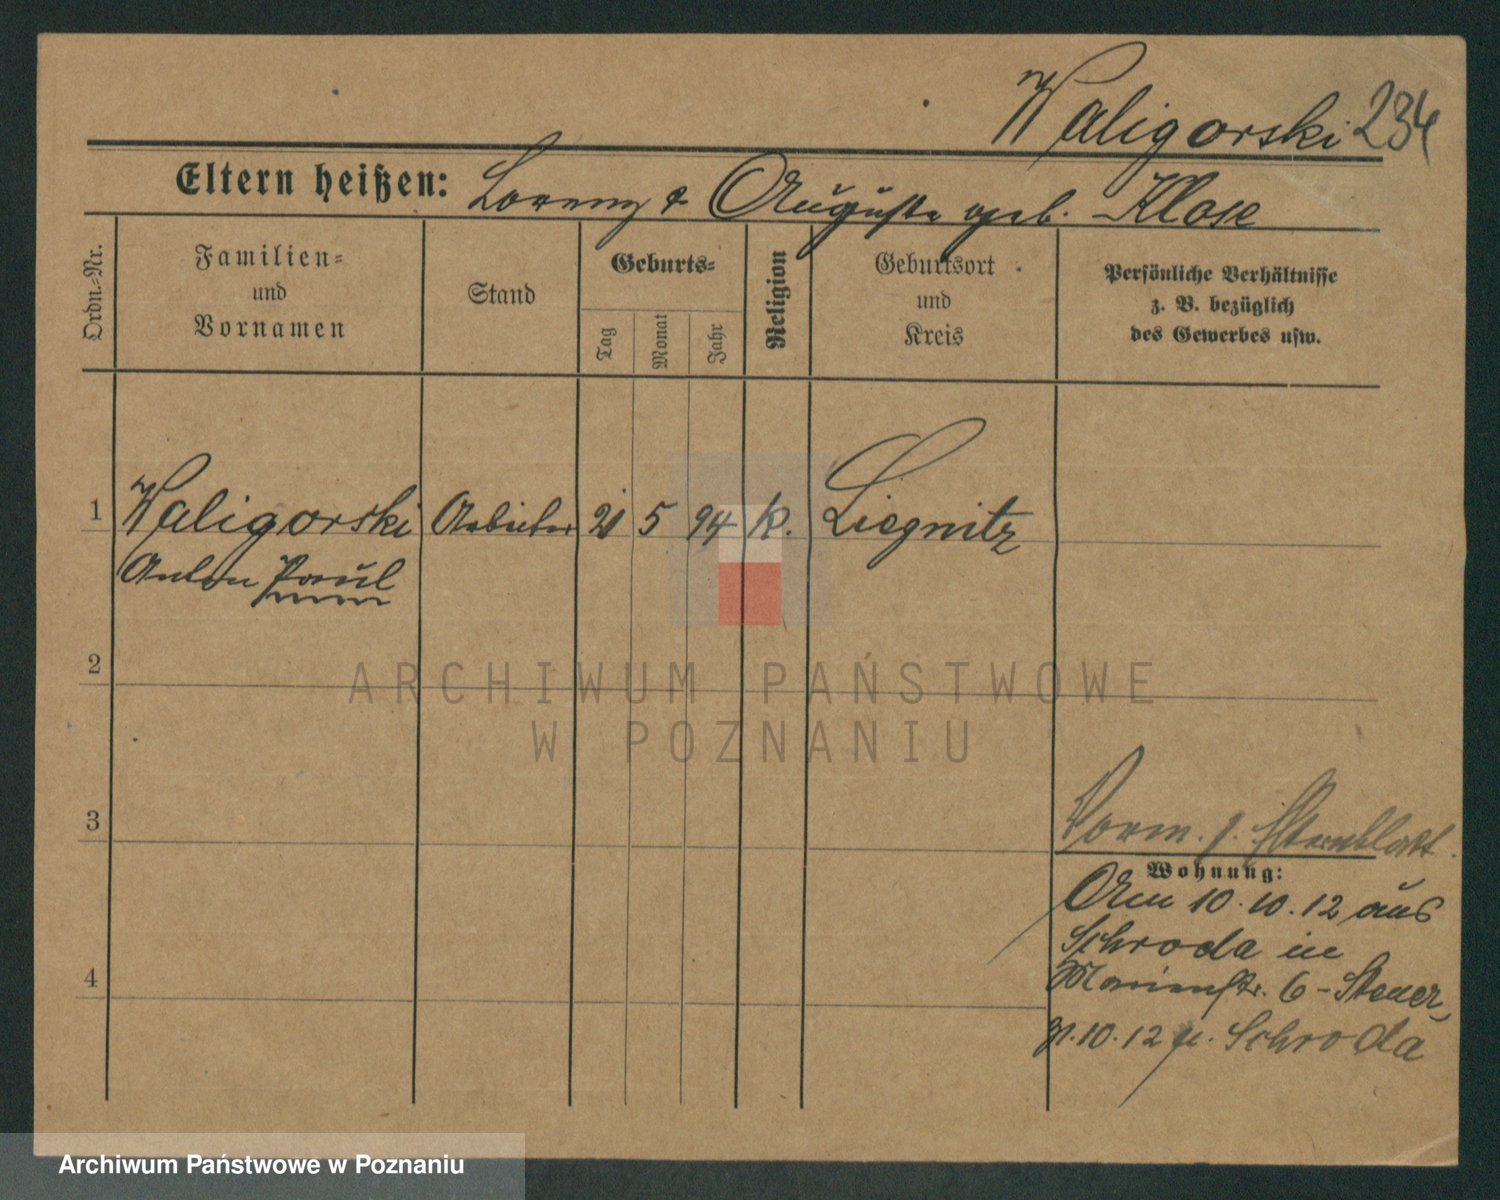 Waligorski 234
Eltern heißen: Lorenz & Auguste geb. Klose
Ordn.-Nr.
Familien-
und
Vornamen
Stand
Geburts-
Tag
Monat
Jahr
Religion
Geburtsort
und
Kreis
Persönliche Verhältnisse
z. B. bezüglich
des Gewerbes usw.
1 Waligorski Arbeiter 21 5 94 k. Liegnitz
Anton Paul
2
ARCHIWUM PAŃSTWOWE
W POZNANIU
3
Vorm. Elternblatt.
Wohnung:
Am 10.10.12 aus
Schroda in
Marienstr. 6 -
4
31.10.12 Schroda
Archiwum Państwowe w Poznaniu